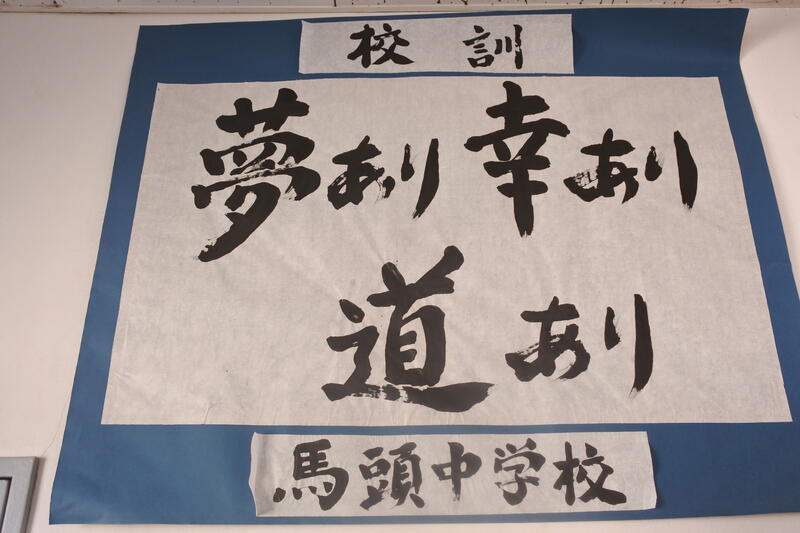 校訓
夢あり 幸あり
道あり
馬頭中学校